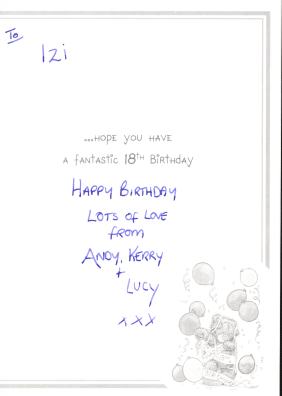 To
Izi
...HOPE YOU HAVE
A FANTASTIC 18TH BIRTHDAY
HAPPY BIRTHDAY
LOTS OF LOVE
FROM
ANDY, KERRY
+
LUCY
xxx